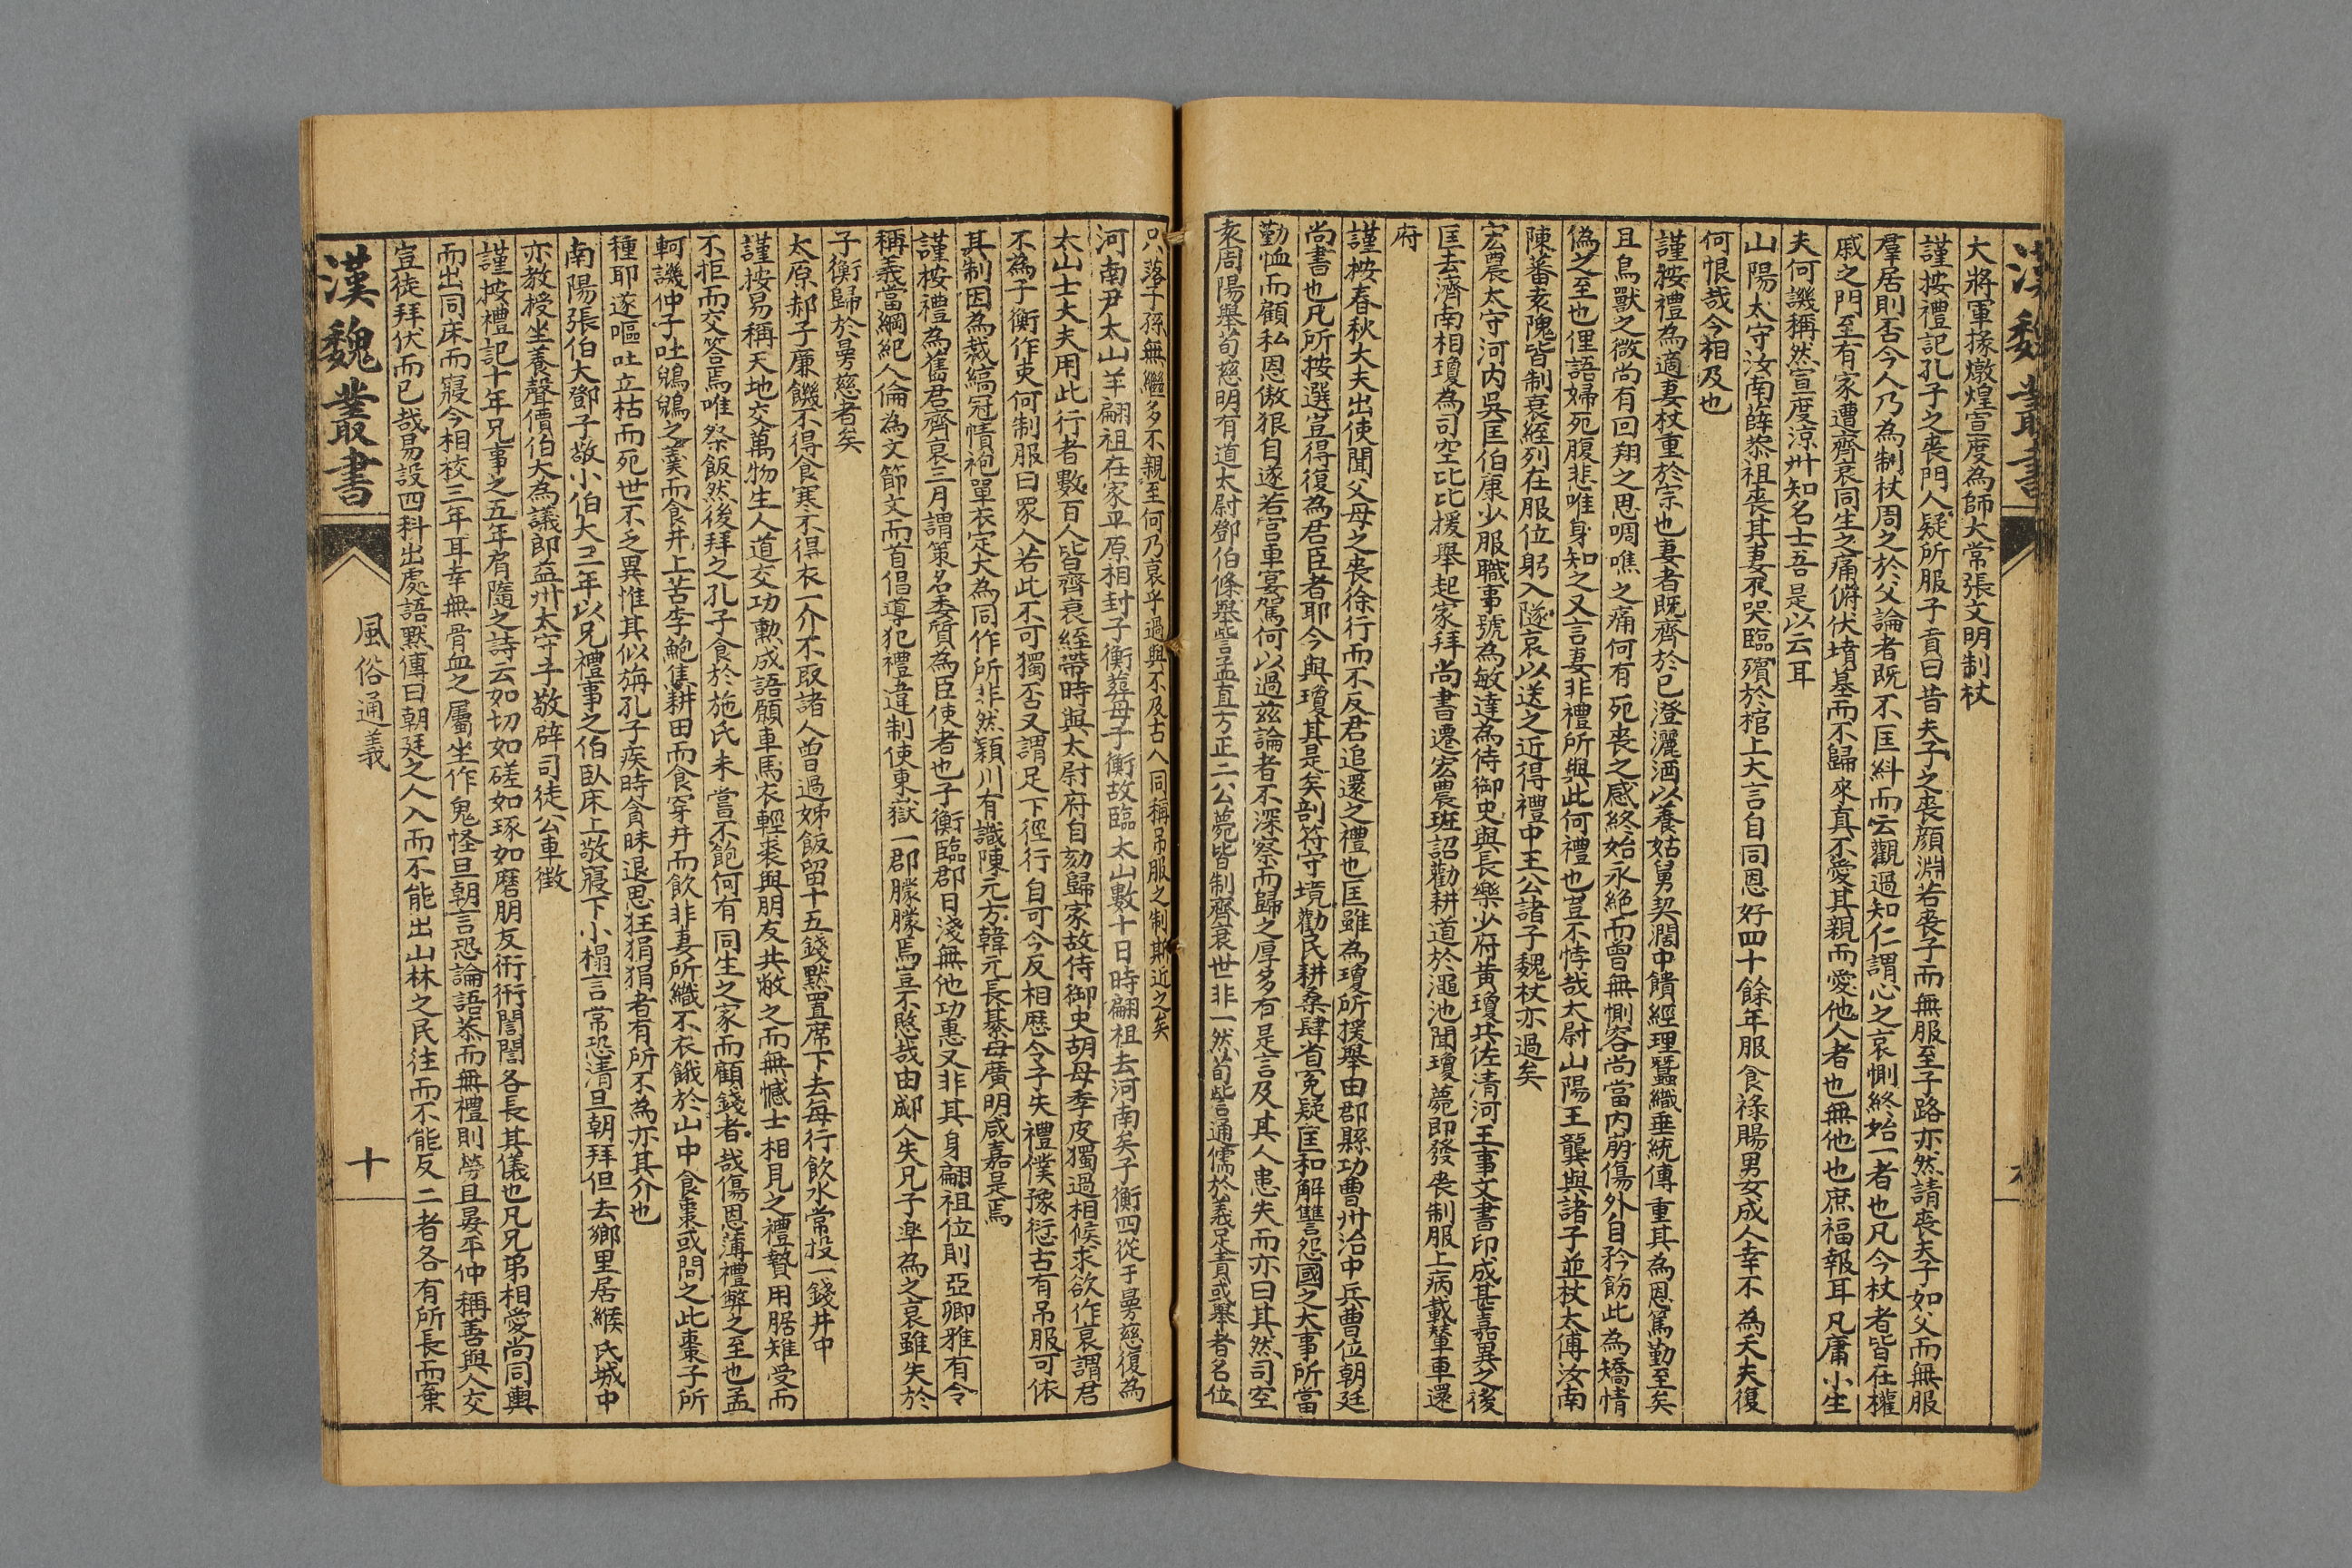 漢魏叢書
大將軍掾燉煌宣度為師太常張文明制杖
謹按禮記孔子之喪門人疑所服子貢曰昔夫子之喪顏淵若喪子而無服至子路亦然請喪夫子如父而無服
羣居則否今人乃為制杖周之於父論者既不匡糾而云觀過知仁謂心之哀惻終始一者也凡今杖者皆在權
戚之門至有家遭齊衰同生之痛俯伏墳墓而不歸來真不愛其親而愛他人者也無他也庶福報耳凡庸小生
夫何譏稱然宣度涼州知名士吾是以云耳
山陽太守汝南薛恭祖喪其妻不哭臨殯於棺上大言自同恩好四十餘年服食祿賜男女成人幸不為夭夫復
何恨哉今相及也
謹按禮為適妻杖重於宗也妻者既齊於已澄灑酒以養姑舅契濶中饋經理蠶織垂統傳重其為恩篤勤至矣
且鳥獸之微尚有回翔之思啁噍之痛何有死喪之感終始永絕而曾無惻容尚當內崩傷外自矜飭此為矯情
偽之至也俚語婦死腹悲唯身知之又言妻非禮所與此何禮也豈不悖哉太尉山陽王龔與諸子並杖太傅汝南
陳蕃袁隗皆制衰絰列在服位躬入隧哀以送之近得禮中王公諸子魏杖亦過矣
宏農太守河內吳匡伯康少服職事號為敏達為侍御史與長樂少府黃瓊共佐清河王事文書印成甚嘉異之後
匡去濟南相瓊為司空比比援舉起家拜尚書遷宏農班詔勸耕道於澠池聞瓊薨即發喪制服上病載輦車還
府
謹按春秋大夫出使聞父母之喪徐行而不反君追還之禮也匡雖為瓊所援舉由郡縣功曹州治中兵曹位朝廷
尚書也凡所按選豈得復為君臣者耶今與瓊其是矣剖符守境勸民耕桑肆省冤疑匡和解讐怨國之大事所當
勤恤而顧私恩傲狠自遂若宮車宴駕何以過茲論者不深察而歸之厚多有是言及其人患失而亦曰其然司空
袁周陽舉荀慈明有道太尉鄧伯條舉訾孟直方正二公薨皆制齊衰世非一然荀訾通儒於義足責或舉者名位
只落子孫無繼多不親至何乃哀乎過與不及古人同稱吊服之制斯近之矣
河南尹太山羊翩祖在家平原相封子衡葬母子衡故臨太山數十日時翩祖去河南矣子衡四從子曼慈復為
太山士大夫用此行者數百人皆齊衰絰帶時與太尉府自劾歸家故侍御史胡母季皮獨過相候求欲作衰謂君
不為子衡作吏何制服曰眾人若此不可獨否又謂足下徑行自可今反相歷令子失禮僕豫愆古有吊服可依
其制因為裁縞冠幘袍單衣定大為同作所非然潁川有識陳元方韓元長綦母廣明咸嘉是焉
謹按禮為舊君齊衰三月謂策名委質為臣使者也子衡臨郡日淺無他功惠又非其身翩祖位則亞卿雅有令
稱義當綱紀人倫為文節文而首倡導犯禮違制使東嶽一郡朦朦焉豈不愍哉由郕人失兄子臯為之哀雖失於
子衡歸於曼慈者矣
太原郝子廉饑不得食寒不得衣一介不取諸人曾過姊飯留十五錢默置席下去每行飲水常投一錢井中
謹按易稱天地交萬物生人道交功勲成語願車馬衣輕裘與朋友共敝之而無憾士相見之禮贄用腒雉受而
不拒而交答焉唯祭飯然後拜之孔子食於施氏未嘗不飽何有同生之家而顧錢者哉傷恩薄禮弊之至也孟
軻譏仲子吐鶃鶃之羮而食井上苦李鮑焦耕田而食穿井而飲非妻所織不衣餓於山中食棗或問之此棗子所
種耶遂嘔吐立枯而死世不乏異惟其似旃孔子疾時貪昧退思狂狷狷者有所不為亦其介也
南陽張伯大鄧子敬小伯大三年以兄禮事之伯臥床上敬寢下小榻言常恐清旦朝拜但去鄉里居緱氏城中
亦教授坐養聲價伯大為議郎益州太守子敬辟司徒公車徵
謹按禮記十年兄事之五年肩隨之詩云如切如磋如琢如磨朋友衎衎誾誾各長其儀也凡兄弟相愛尚同輿
而出同床而寢今相校三年耳幸無骨血之屬坐作鬼怪旦朝言恐論語恭而無禮則勞且晏平仲稱善與人交
豈徒拜伏而已哉易設四科出處語默傳曰朝廷之人入而不能出山林之民往而不能反二者各有所長而棄
漢魏叢書
風俗通義
十